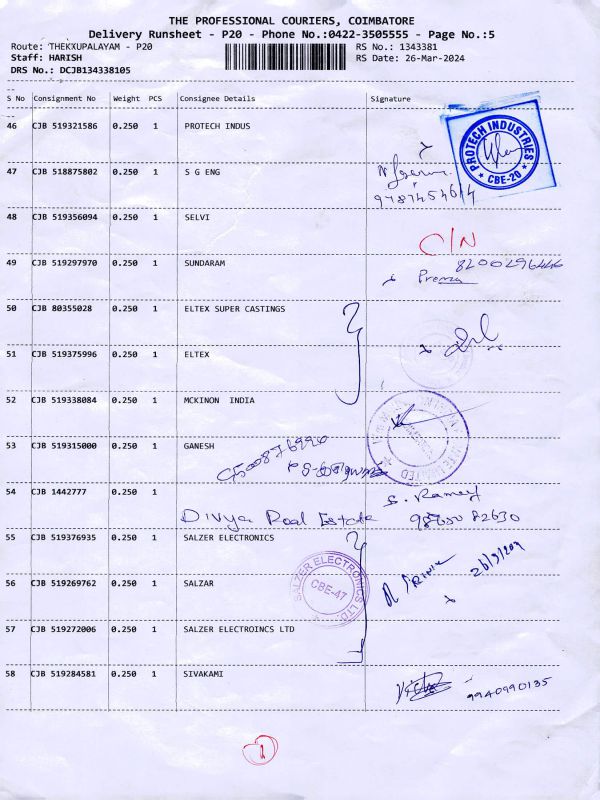 THE PROFESSIONAL COURIERS, COIMBATORE
Delivery Runsheet - P20 - Phone No.:0422-3505555 - Page No.:5
Route: THEKXUPALAYAM - P20 RS No.: 1343381
Staff: HARISH RS Date: 26-Mar-2024
DRS No.: DCJB134338105
S No Consignment No Weight PCS Consignee Details Signature
46 CJB 519321586 0.250 1 PROTECH INDUS
PROTECH INDUSTRIES
* CBE-20 *
47 CJB 518875802 0.250 1 S G ENG
48 CJB 519356094 0.250 1 SELVI
C/N
49 CJB 519297970 0.250 1 SUNDARAM
50 CJB 80355028 0.250 1 ELTEX SUPER CASTINGS
51 CJB 519375996 0.250 1 ELTEX
52 CJB 519338084 0.250 1 MCKINON INDIA
53 CJB 519315000 0.250 1 GANESH
54 CJB 1442777 0.250 1
Divya Real Estate S. Ramey
55 CJB 519376935 0.250 1 SALZER ELECTRONICS
56 CJB 519269762 0.250 1 SALZAR
SALZER ELECTRONICS
CBE-47
57 CJB 519272006 0.250 1 SALZER ELECTROINCS LTD
58 CJB 519284581 0.250 1 SIVAKAMI
9940990135